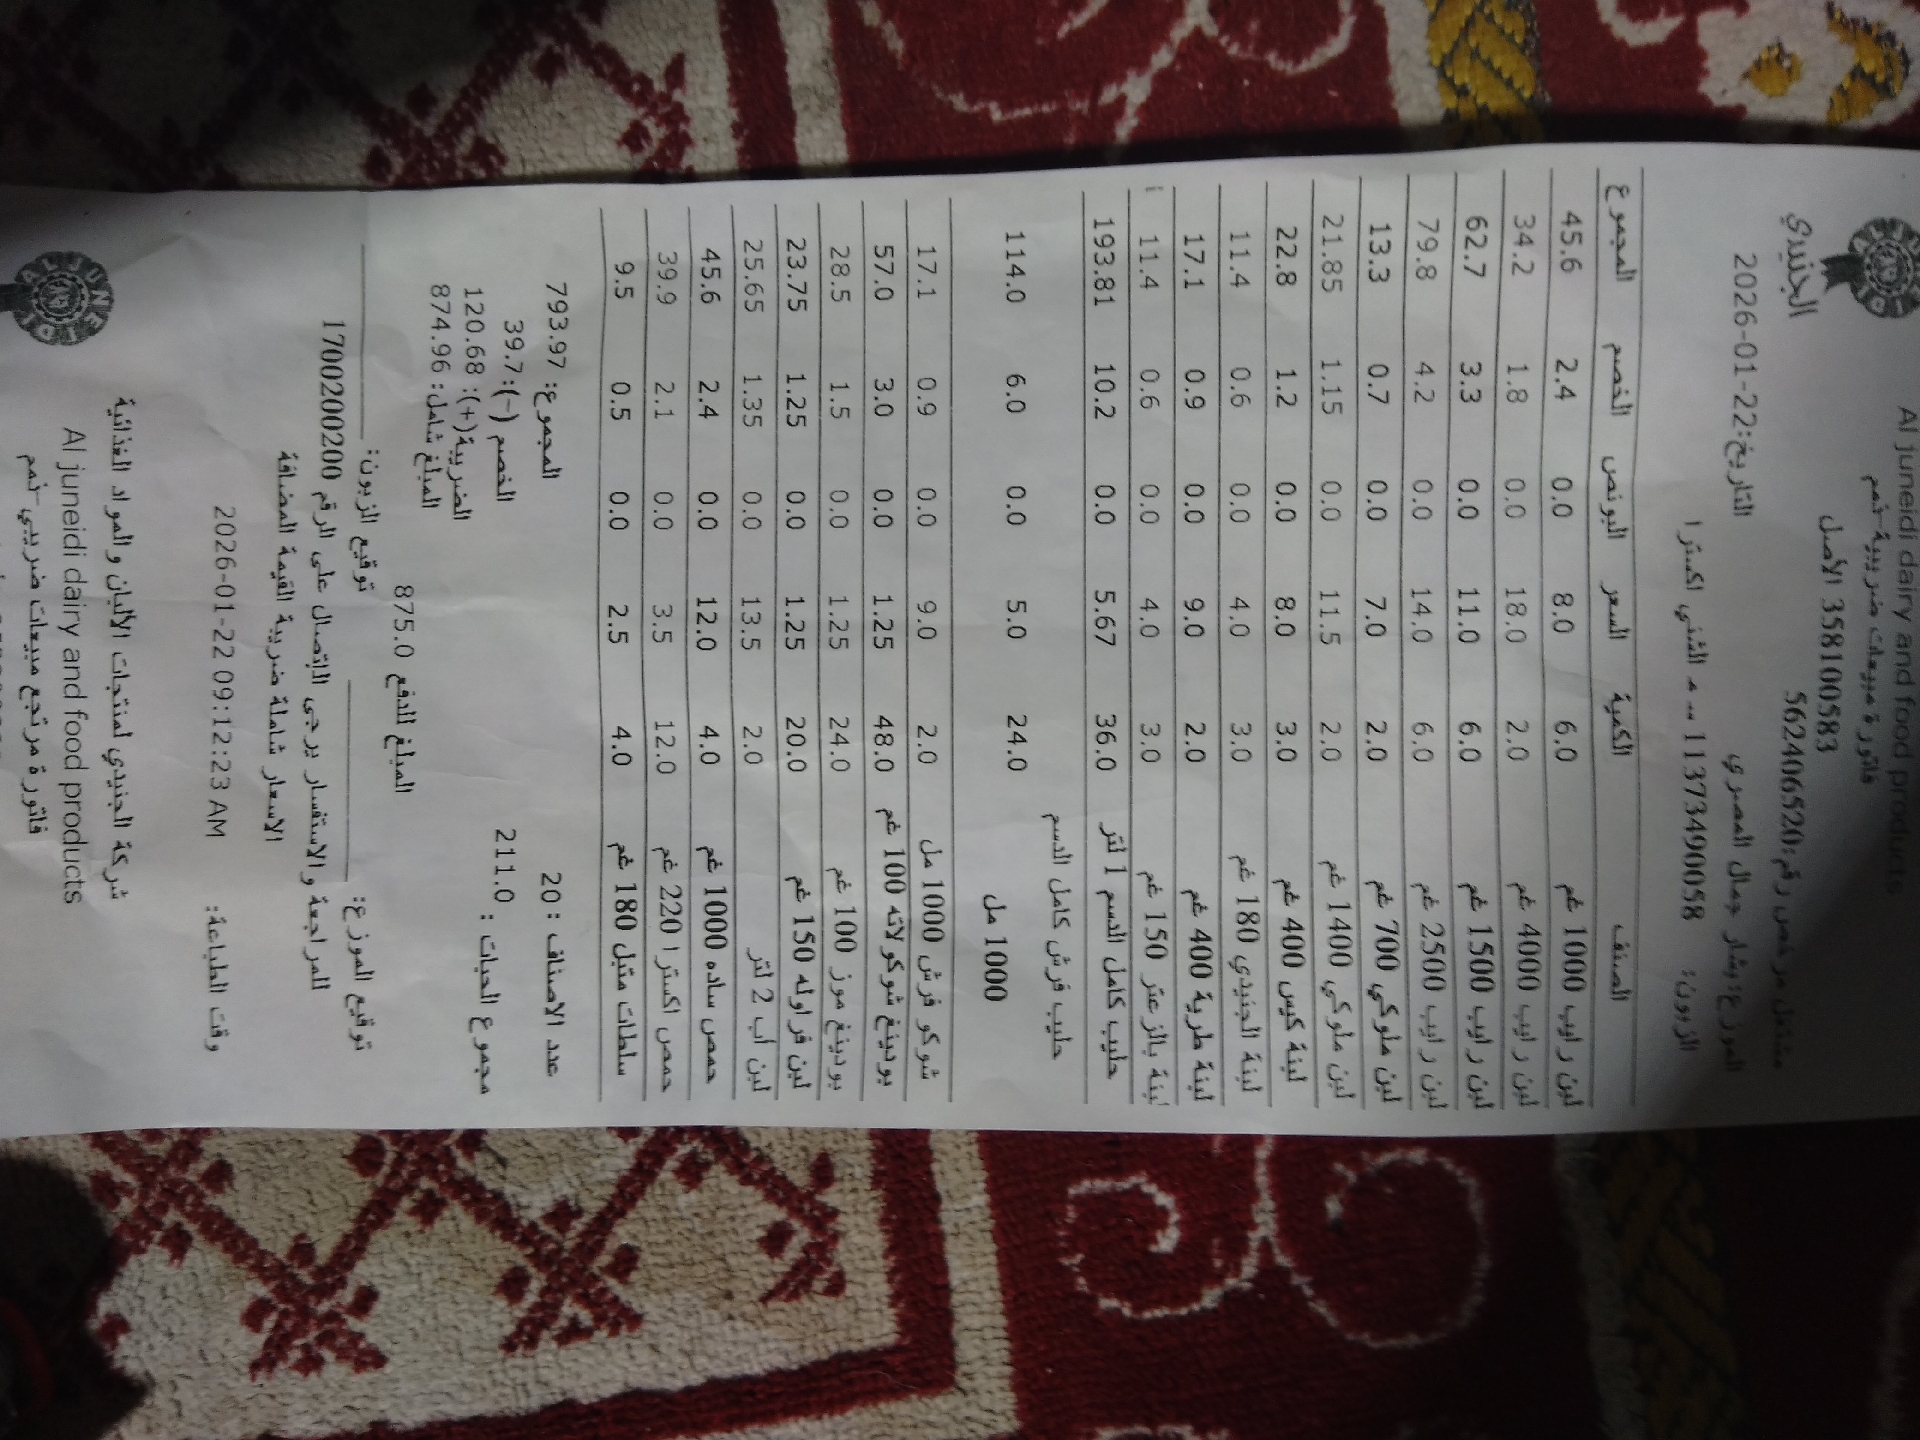 Al juneidi dairy and food products
الجنيدي
فاتورة مبيعات ضريبية-ذمم
3581100583 الأصل
مشتغل مرخص رقم:562406520
التاريخ:2026-01-22
الموزع:بشار جمال المصري
الزبون: 11373490058 – س م الثني اكسترا
الصنف الكمية السعر البونص الخصم المجموع
لبن رايب 1000 غم 6.0 8.0 0.0 2.4 45.6
لبن رايب 4000 غم 2.0 18.0 0.0 1.8 34.2
لبن رايب 1500 غم 6.0 11.0 0.0 3.3 62.7
لبن رايب 2500 غم 6.0 14.0 0.0 4.2 79.8
لبن ملوكي 700 غم 2.0 7.0 0.0 0.7 13.3
لبن ملوكي 1400 غم 2.0 11.5 0.0 1.15 21.85
لبنة كيس 400 غم 3.0 8.0 0.0 1.2 22.8
لبنة الجنيدي 180 غم 3.0 4.0 0.0 0.6 11.4
لبنة طرية 400 غم 2.0 9.0 0.0 0.9 17.1
لبنة بالزعتر 150 غم 3.0 4.0 0.0 0.6 11.4
حليب كامل الدسم 1 لتر 36.0 5.67 0.0 10.2 193.81
حليب فرش كامل الدسم
1000 مل 24.0 5.0 0.0 6.0 114.0
شوكو فرش 1000 مل 2.0 9.0 0.0 0.9 17.1
بودينغ شوكولاته 100 غم 48.0 1.25 0.0 3.0 57.0
بودينغ موز 100 غم 24.0 1.25 0.0 1.5 28.5
لبن فراوله 150 غم 20.0 1.25 0.0 1.25 23.75
لبن اب 2 لتر 2.0 13.5 0.0 1.35 25.65
حمص ساده 1000 غم 4.0 12.0 0.0 2.4 45.6
حمص اكسترا 220 غم 12.0 3.5 0.0 2.1 39.9
سلطات متبل 180 غم 4.0 2.5 0.0 0.5 9.5
عدد الاصناف : 20 المجموع: 793.97
مجموع الحبات : 211.0 الخصم (-): 39.7
الضريبة(+): 120.68
المبلغ شامل: 874.96
المبلغ للدفع 875.0
توقيع الموزع: توقيع الزبون:
للمراجعة والاستفسار يرجى الاتصال على الرقم 1700200200
الاسعار شاملة ضريبة القيمة المضافة
وقت الطباعة: 2026-01-22 09:12:23 AM
شركة الجنيدي لمنتجات الألبان والمواد الغذائية
Al juneidi dairy and food products
فاتورة مرتجع مبيعات ضريبي-ذمم